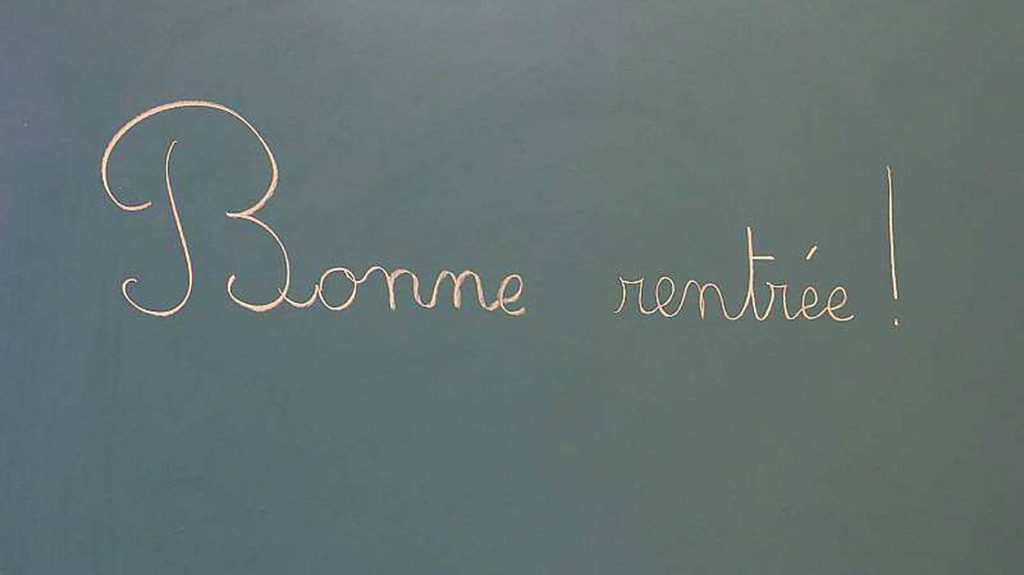 Bonne rentrée !